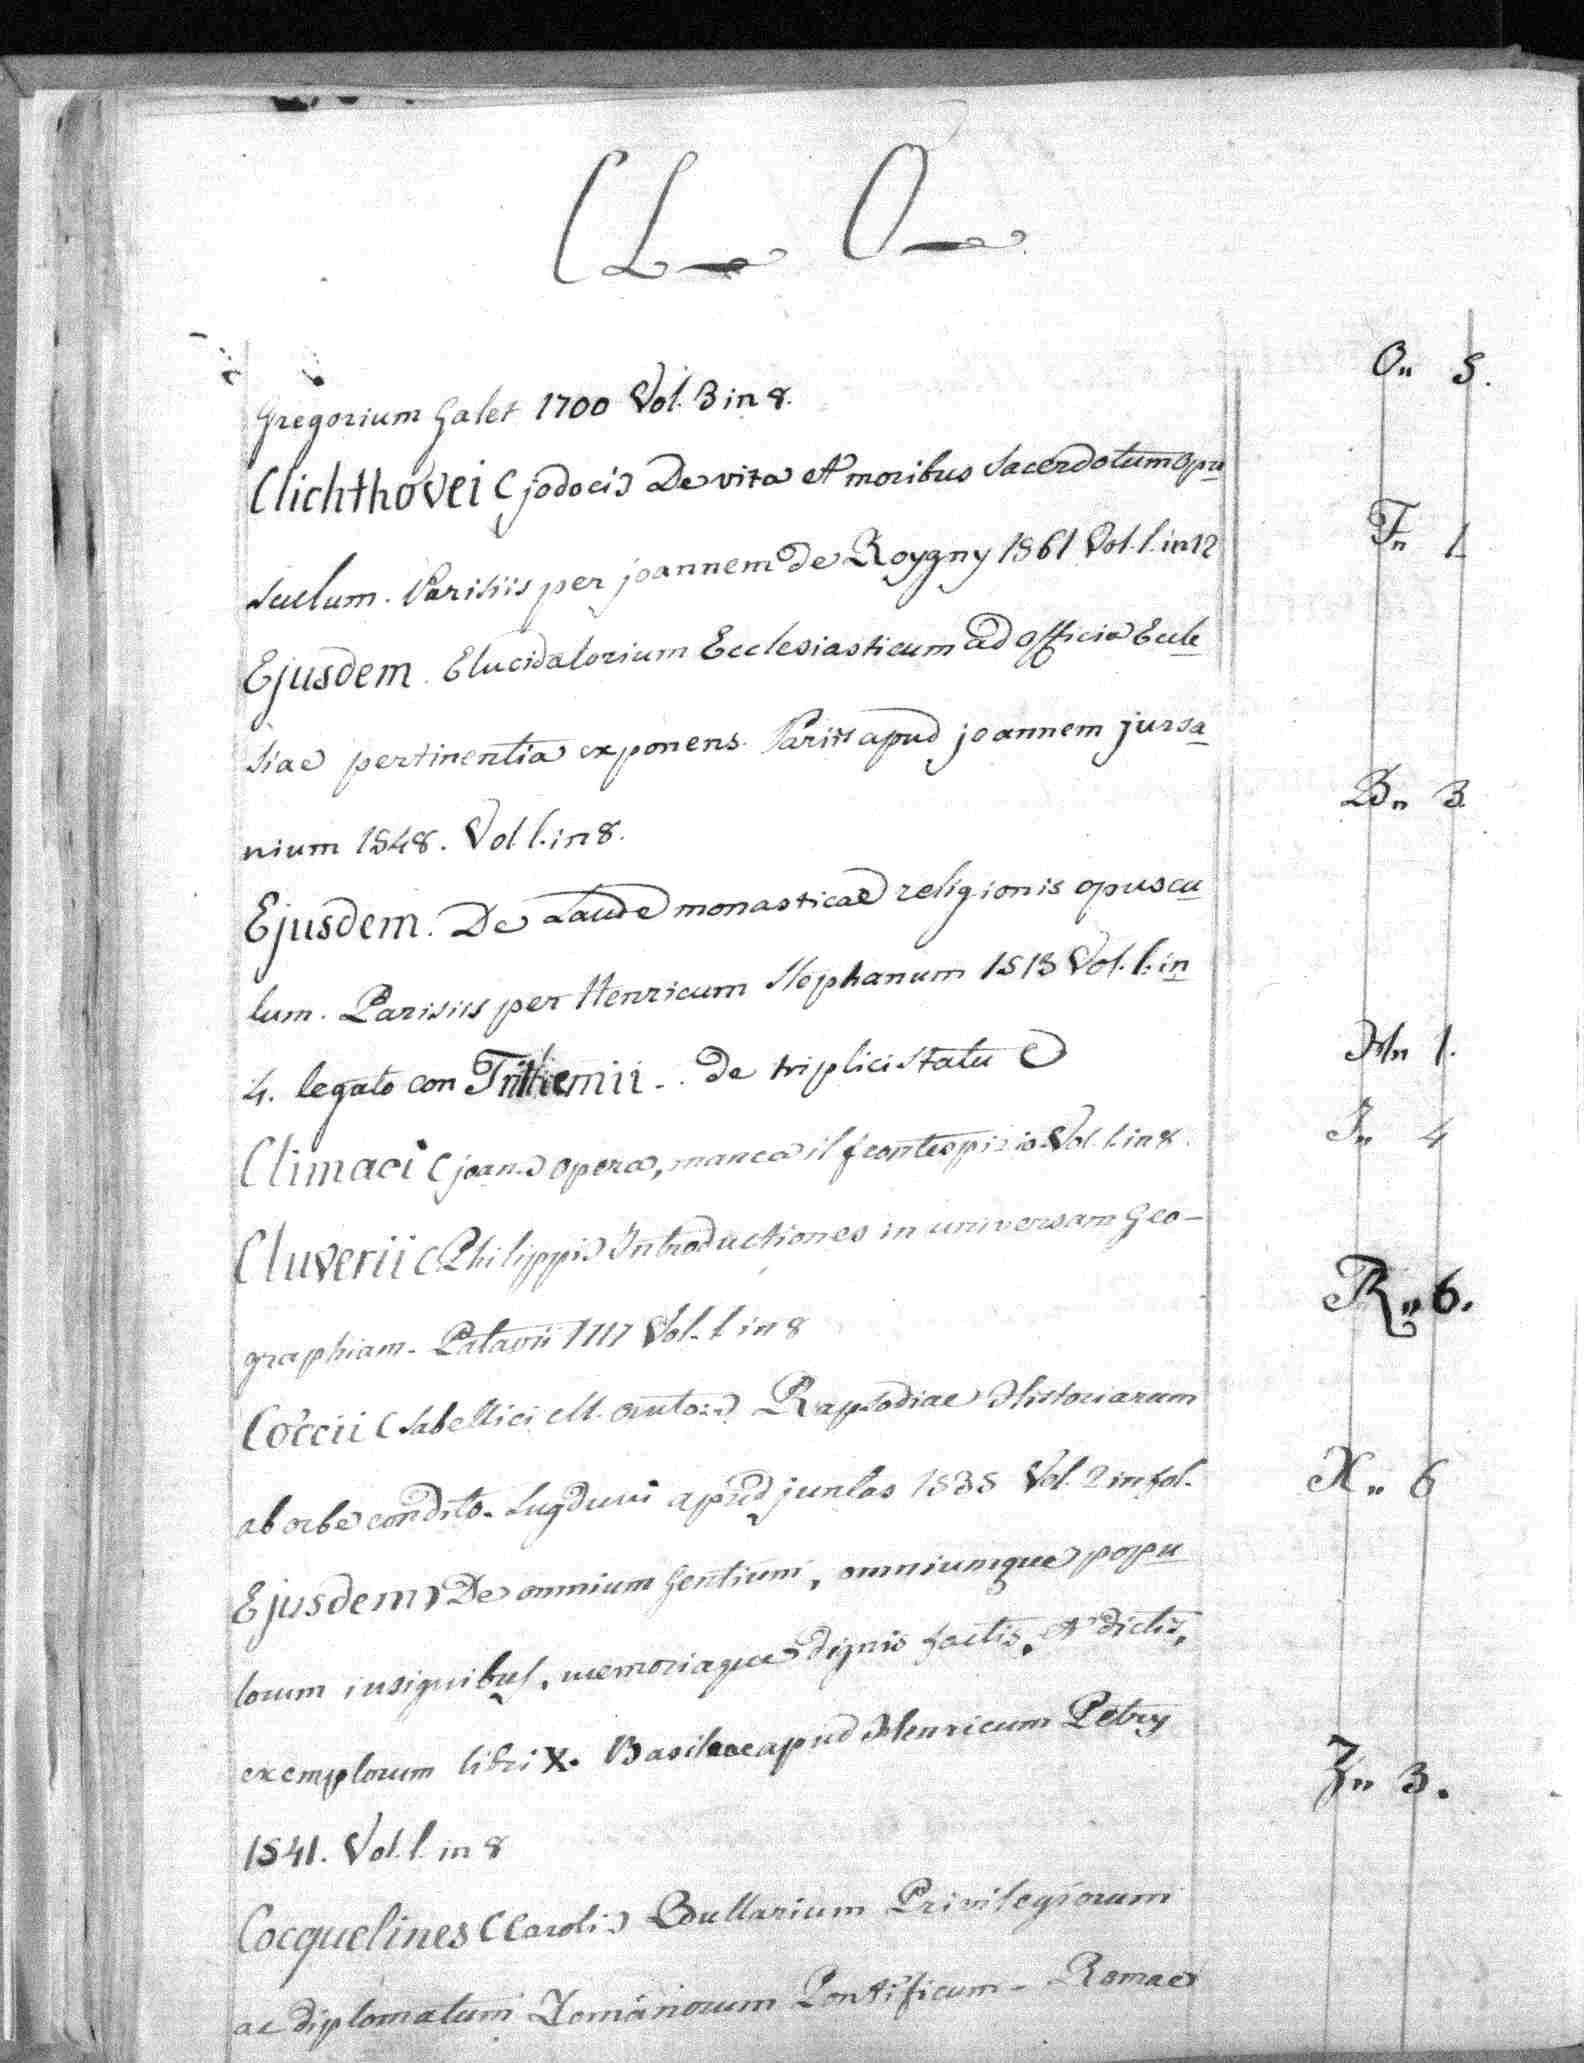 CL O
Gregorium Galet 1700 Vol. 3 in 8. O" 5.
Clichthovei (jodoci) De vita et moribus Sacerdotum opu
sculum. Parisiis per joannem de Roygny 1561 Vol. 1. in 12 T" 1
Ejusdem. Elucidatorium Ecclesiasticum ad officia Eccle
siae pertinentia exponens. Pariis apud joannem jursa
nium 1548. Vol 1. in 8. B" 3
Ejusdem. De Laude monasticae religionis opuscu
lum. Parisiis per Henricum Stephanum 1513 Vol. 1. in
4. legato con Trithemii - . de triplici statu H" 1.
Climaci (joan:) opera, manca il frontespizio Vol. 1. in 8. I" 4
Cluverii (Philippi) Introductiones in universam Geo-
graphiam. Patavii 1711 Vol. 1 in 8 R" 6.
Coccii (Sabellici M. anto:) Rapsodiae Historiarum
ab orbe condito. Lugduni apud juntas 1535 Vol. 2 in fol. X" 6
Ejusdem) De omnium Gentium, omniumque popu
lorum insignibus, memoriaque dignis factis, et dictis,
exemplorum libri X. Basileae apud Henricum Petry
1541. Vol. 1. in 8 Z" 3.
Cocquelines (Caroli) Bullarium Privilegiorum
ac diplomatum Romanorum Pontificum - Romae